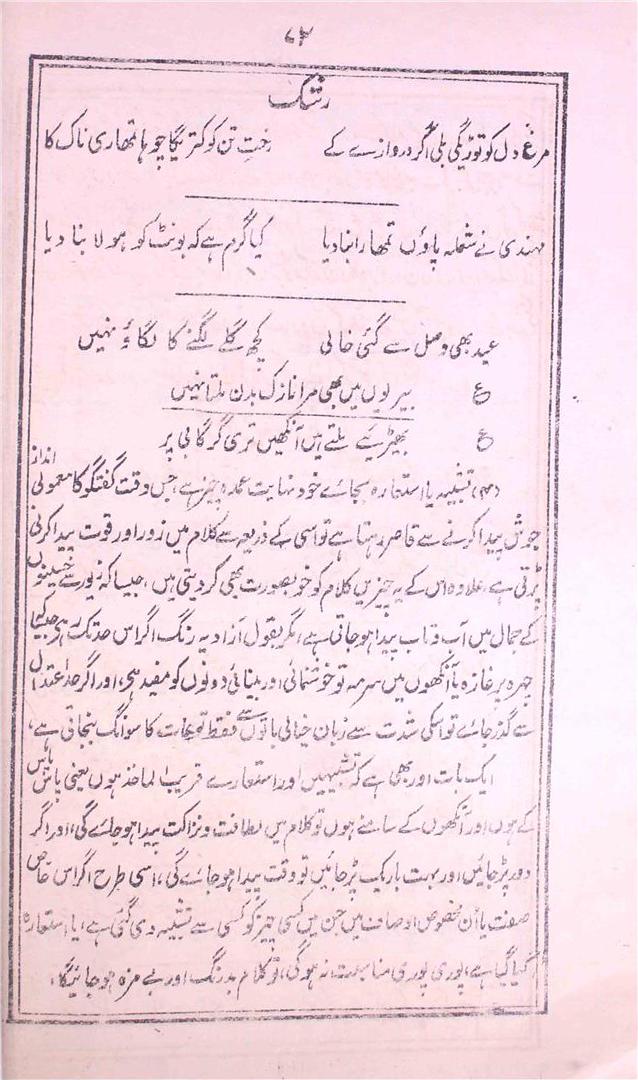 ۸۳
رشک
مرغِ دل کو توڑیگی بلی اگر دروازے کے رختِ تن کو کتریگا چوہا تمھاری ناک کا
مہندی نے شعلہ پاؤں تمھارا بنا دیا کیا گرم ہے کہ بونٹ کو ہولا بنا دیا
عید بھی وصل سے گئی خالی کچھ گلے لگنے کا لگاؤ نہیں
ع بیریوں میں بھی مرا نازک بدن ملتا نہیں
ع بھیڑیے پلتے ہیں آنکھیں تری گرگابی پر
(۳) تشبیہ یا استعارہ بجائے خود نہایت عمدہ چیز ہے، جس وقت گفتگو کا معمولی انداز
جوش پیدا کرنے سے قاصر رہتا ہے تو اسی کے ذریعہ سے کلام میں زور اور قوت پیدا کرنی
پڑتی ہے، علاوہ اس کے یہ چیزیں کلام کو خوبصورت بھی کر دیتی ہیں، جیسا کہ زیور سے حسینوں
کے جمال میں آب و تاب پیدا ہو جاتی ہے، مگر بقول آزاد یہ رنگ اگر اس حد تک رہے جیسا کہ
چہرہ پر غازہ یا آنکھوں میں سرمہ تو خوشنمائی اور بینائی دونوں کو مفید ہے، اور اگر حد اعتدال
سے گذر جائے تو اسکی شدت سے زبان خیالی باتوں سے فقط توہمات کا سوانگ بنجاتی ہے،
ایک بات اور بھی ہے کہ تشبیہیں اور استعارے قریب الماخذ ہوں یعنی پاس پاس
کے ہوں اور آنکھوں کے سامنے ہوں تو کلام میں لطافت و نزاکت پیدا ہو جائے گی، اور اگر
دور پڑ جائیں اور بہت باریک پڑ جائیں تو دقت پیدا ہو جائے گی، اسی طرح اگر اس خاص
صفت یا ان مخصوص اوصاف میں جن میں کسی چیز کو کسی سے تشبیہ دی گئی ہے، یا استعارہ
کیا گیا ہے، پوری پوری مناسبت نہ ہوگی، تو کلام بد رنگ اور بے مزہ ہو جائیگا،